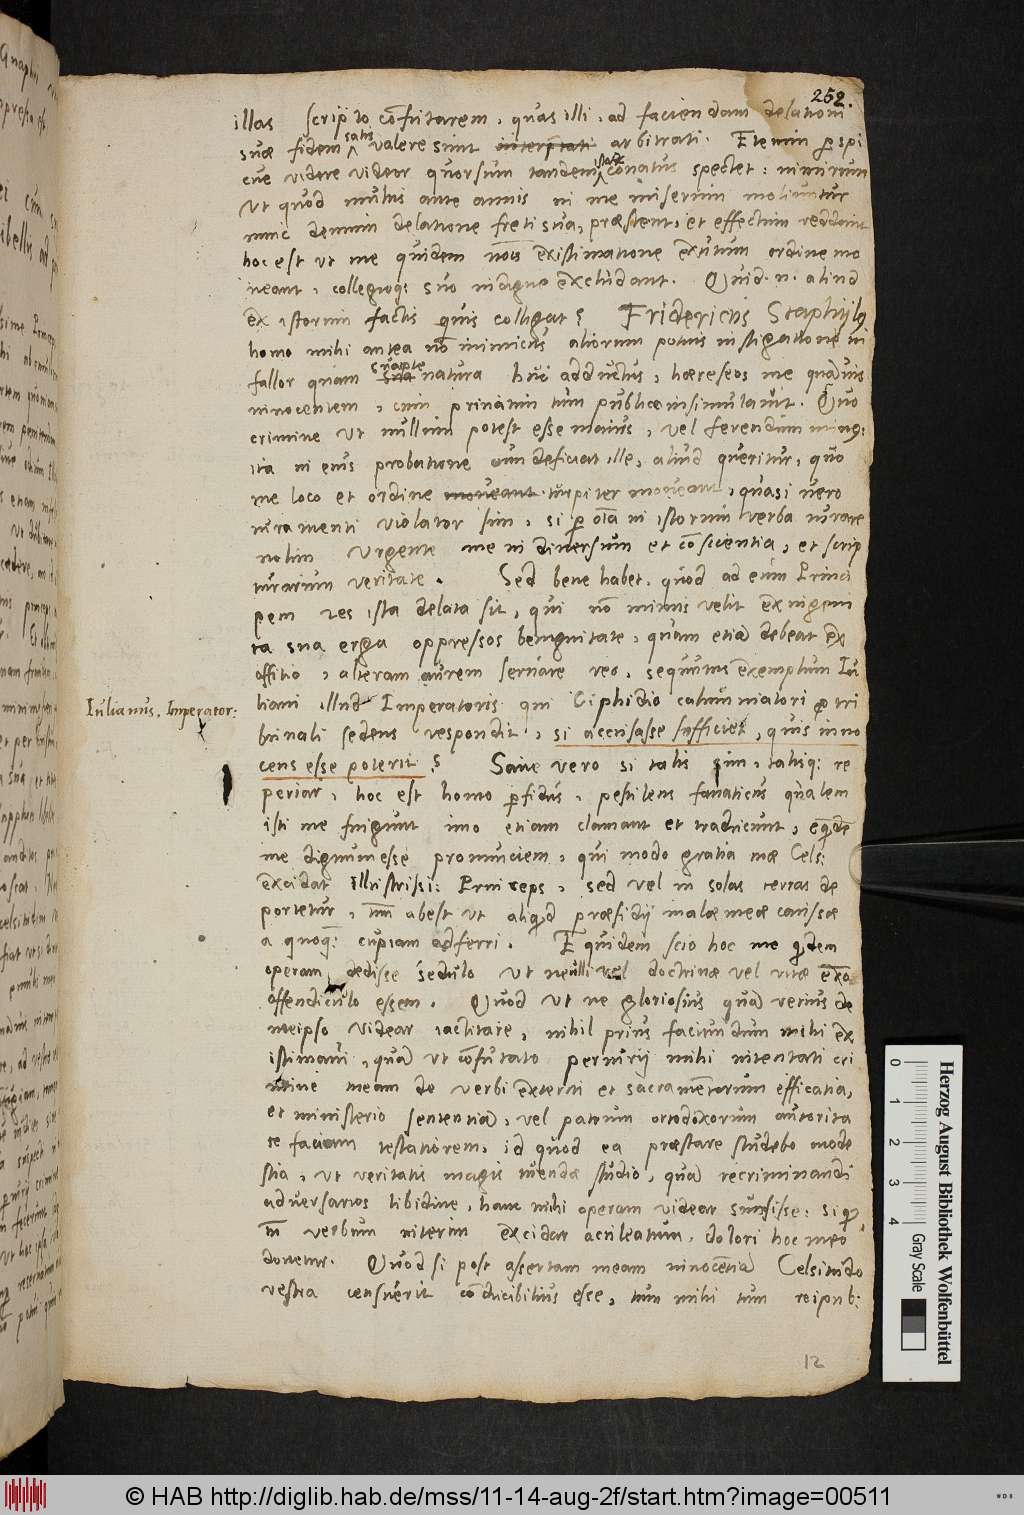 252.
illas scripto cõfutarem, quas illi, ad faciendam delationi
suæ fidem satis valere sunt interp̃tati arbitrati. Etenim p̱spi
cue videre videor quorsum tandem istorũ conatus spectet: nimirum
ut quod multis ante annis in me miserum moliuntur
nunc demum delatione freti sua, præstent, et effectum reddant
hoc est ut me quidem existimatione exutum ordine mo
veant, collegioq̃ suo indigne excludant. Quid .n. aliud
ex istorum factis quis colligat? Fridericus Staphilus
homo mihi antea nõ inimicus aliorum potius instigatione ni
fallor quam sua suapte natura huc adductus, hæreseos me quãvis
innocentem, cum privatim tum publice insimulavit. Quo
crimine ut nullum potest esse maius, vel ferendum minus:
ita in eius probatione cum deficiat ille, aliud queritur, quo
me loco et ordine moveant turpiter moveant, quasi vero
iuramenti violator sim, si p̱ oĩa in istorum verba iurare
nolim urgente me in diversum et cõscientia, et scrip
turarum veritate. Sed bene habet, quod ad eum Princi
pem res ista delata sit, qui nõ minus velit ex ingeni
ta sua erga oppressos benignitate, quam etiã debeat ex
offitio, alteram aurem servare reo, sequutus exemplum Iu
liani illud Imperatoris qui Ciphidio calumniatori p̱ tri
Iulianus. Imperator:
bunali sedens respondit, si accusasse sufficiet, quis inno
cens esse poterit? Sane vero si talis sim, talisq̃ re
periar, hoc est homo p̱fidus, pestilens fanaticus qualem
isti me fingunt imo etiam clamant et traducunt, eq̃dẽ
me dignum esse pronunciem, qui modo gratia tuæ Cels:
excidat Illustrissi: Princeps, sed vel in solas terras de
portetur, tm̃ abest ut aliquid præsidij malæ meæ caussæ
a quoq̃ cupiam adferri. Equidem scio hoc me quidem
operam dedisse sedulo ut ne ulli vel doctrinæ vel vitæ
offendiculo essem. Quod ut ne gloriosius quã verius de
meipso videar iactitare, nihil prius faciundum mihi ex
istimavi, quã ut cõfutato periurij mihi intentati cri
mine meam de verbi externi et sacramẽtorum efficatia,
et ministerio sententiã, vel patrum ortodoxorum autorita
te faciam testatiorem, id quod ea præstare studebo mode
stia, ut veritatis magis tuendæ studio, quã recriminandi
adversarios libidine, hanc mihi operam videar sumsisse: si q̃
m̃ verbum interim excidat aculeatum, dolori hoc meo
donetur. Quod si post assertam meam innocẽtiã Celsitudo
vestra censuerit cõducibilius esse, tum mihi tum reipub:
12
Herzog August Bibliothek Wolfenbüttel
0 1 2 3 4
Gray Scale
© HAB http://diglib.hab.de/mss/11-14-aug-2f/start.htm?image=00511